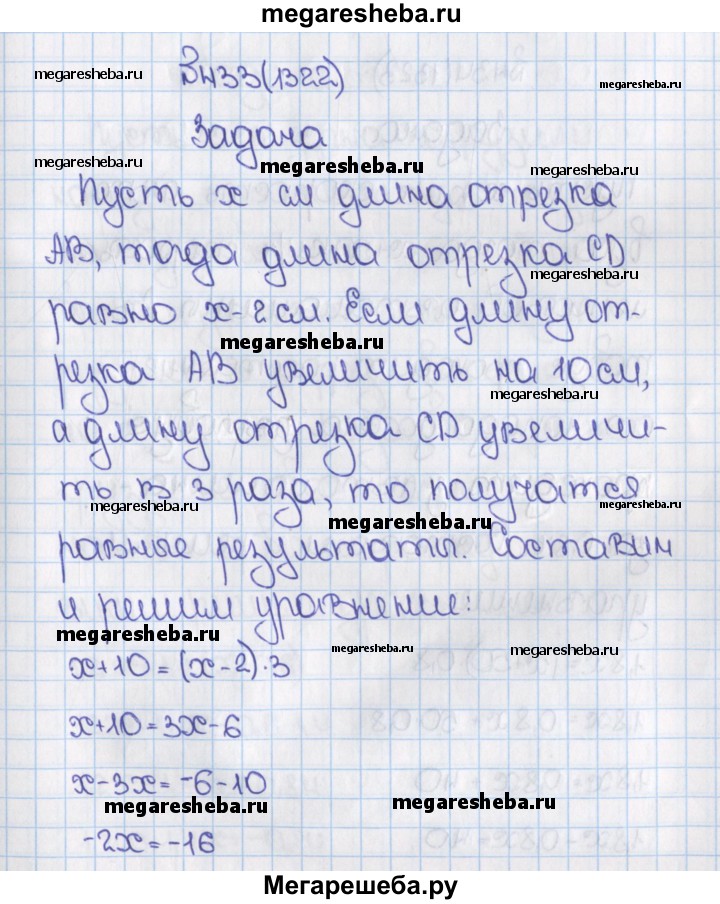 megaresheba.ru
В433(1322)
megaresheba.ru
megaresheba.ru
Задача
megaresheba.ru
megaresheba.ru
megaresheba.ru
Пусть x см длина отрезка
AB, тогда длина отрезка CD
megaresheba.ru
megaresheba.ru
равно x-2см. Если длину от-
megaresheba.ru
резка AB увеличить на 10см,
megaresheba.ru
а длину отрезка CD увеличи-
ть в 3 раза, то получатся
megaresheba.ru
megaresheba.ru
megaresheba.ru
равные результаты. Составим
и решим уравнение:
megaresheba.ru
megaresheba.ru
megaresheba.ru
x+10=(x-2)·3
x+10=3x-6
x-3x=-6-10
megaresheba.ru
megaresheba.ru
-2x=-16
Мегарешеба.ру